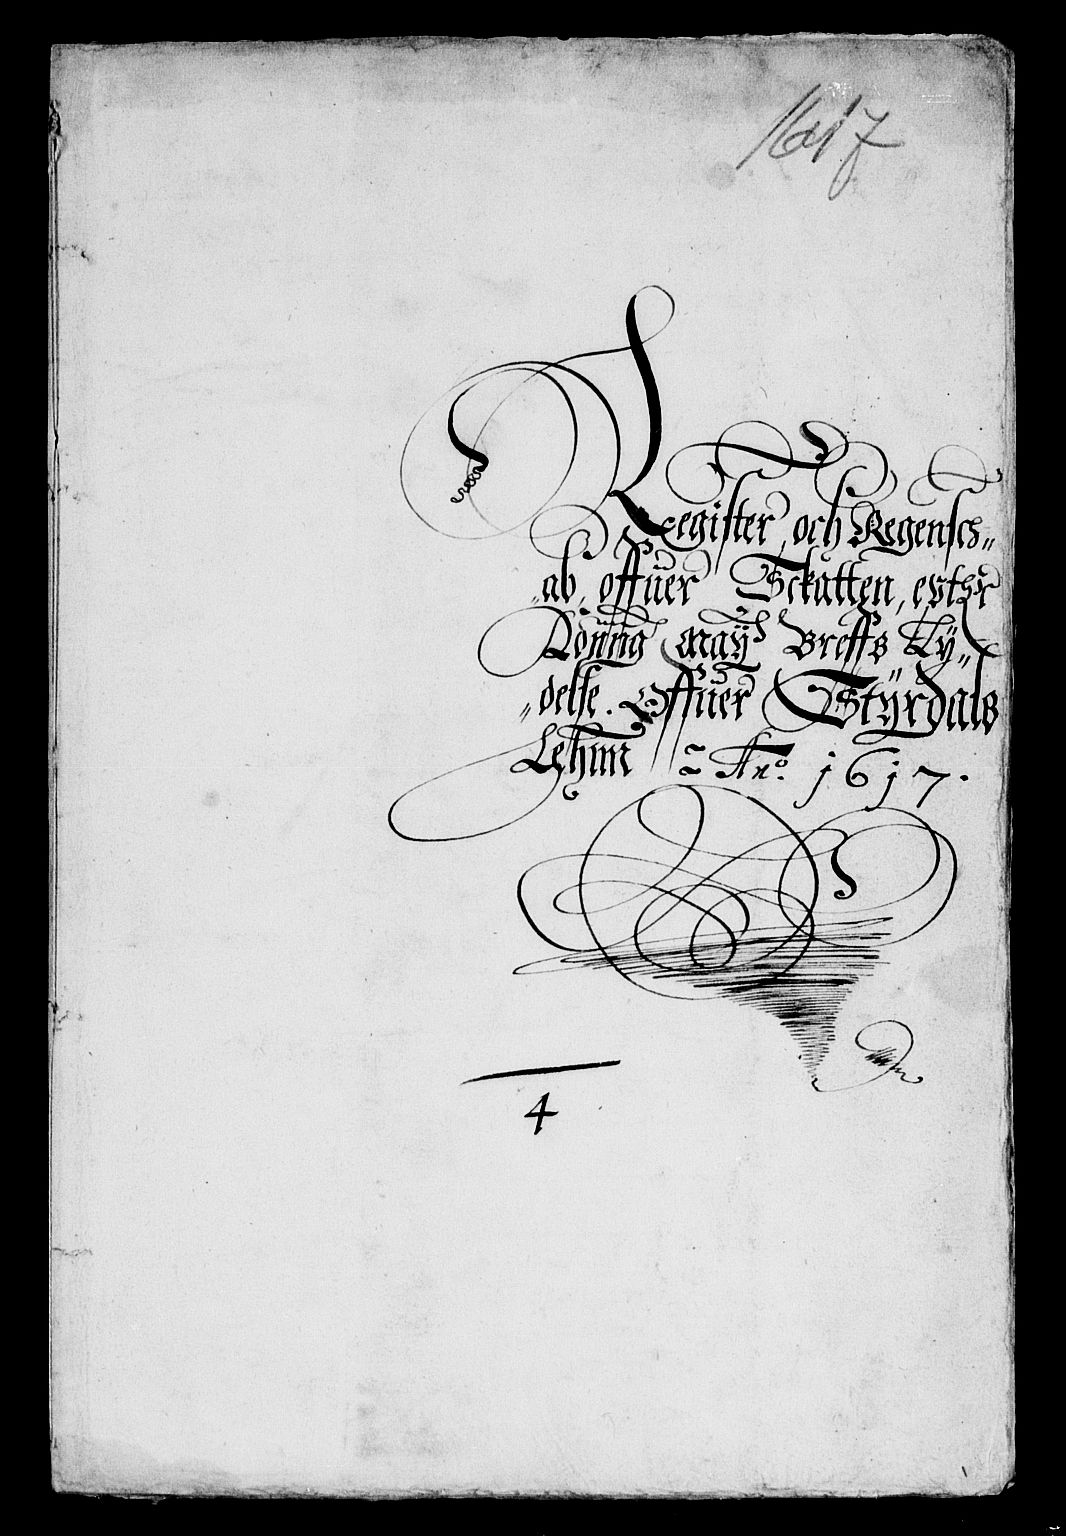 1617
Register, och Regensch„
„ab, offuer Sckatten, epther
Konning May: Breffs Ly„
„delse. Offuer Styrdals
Lehnn ~ Ano. 1617.
4